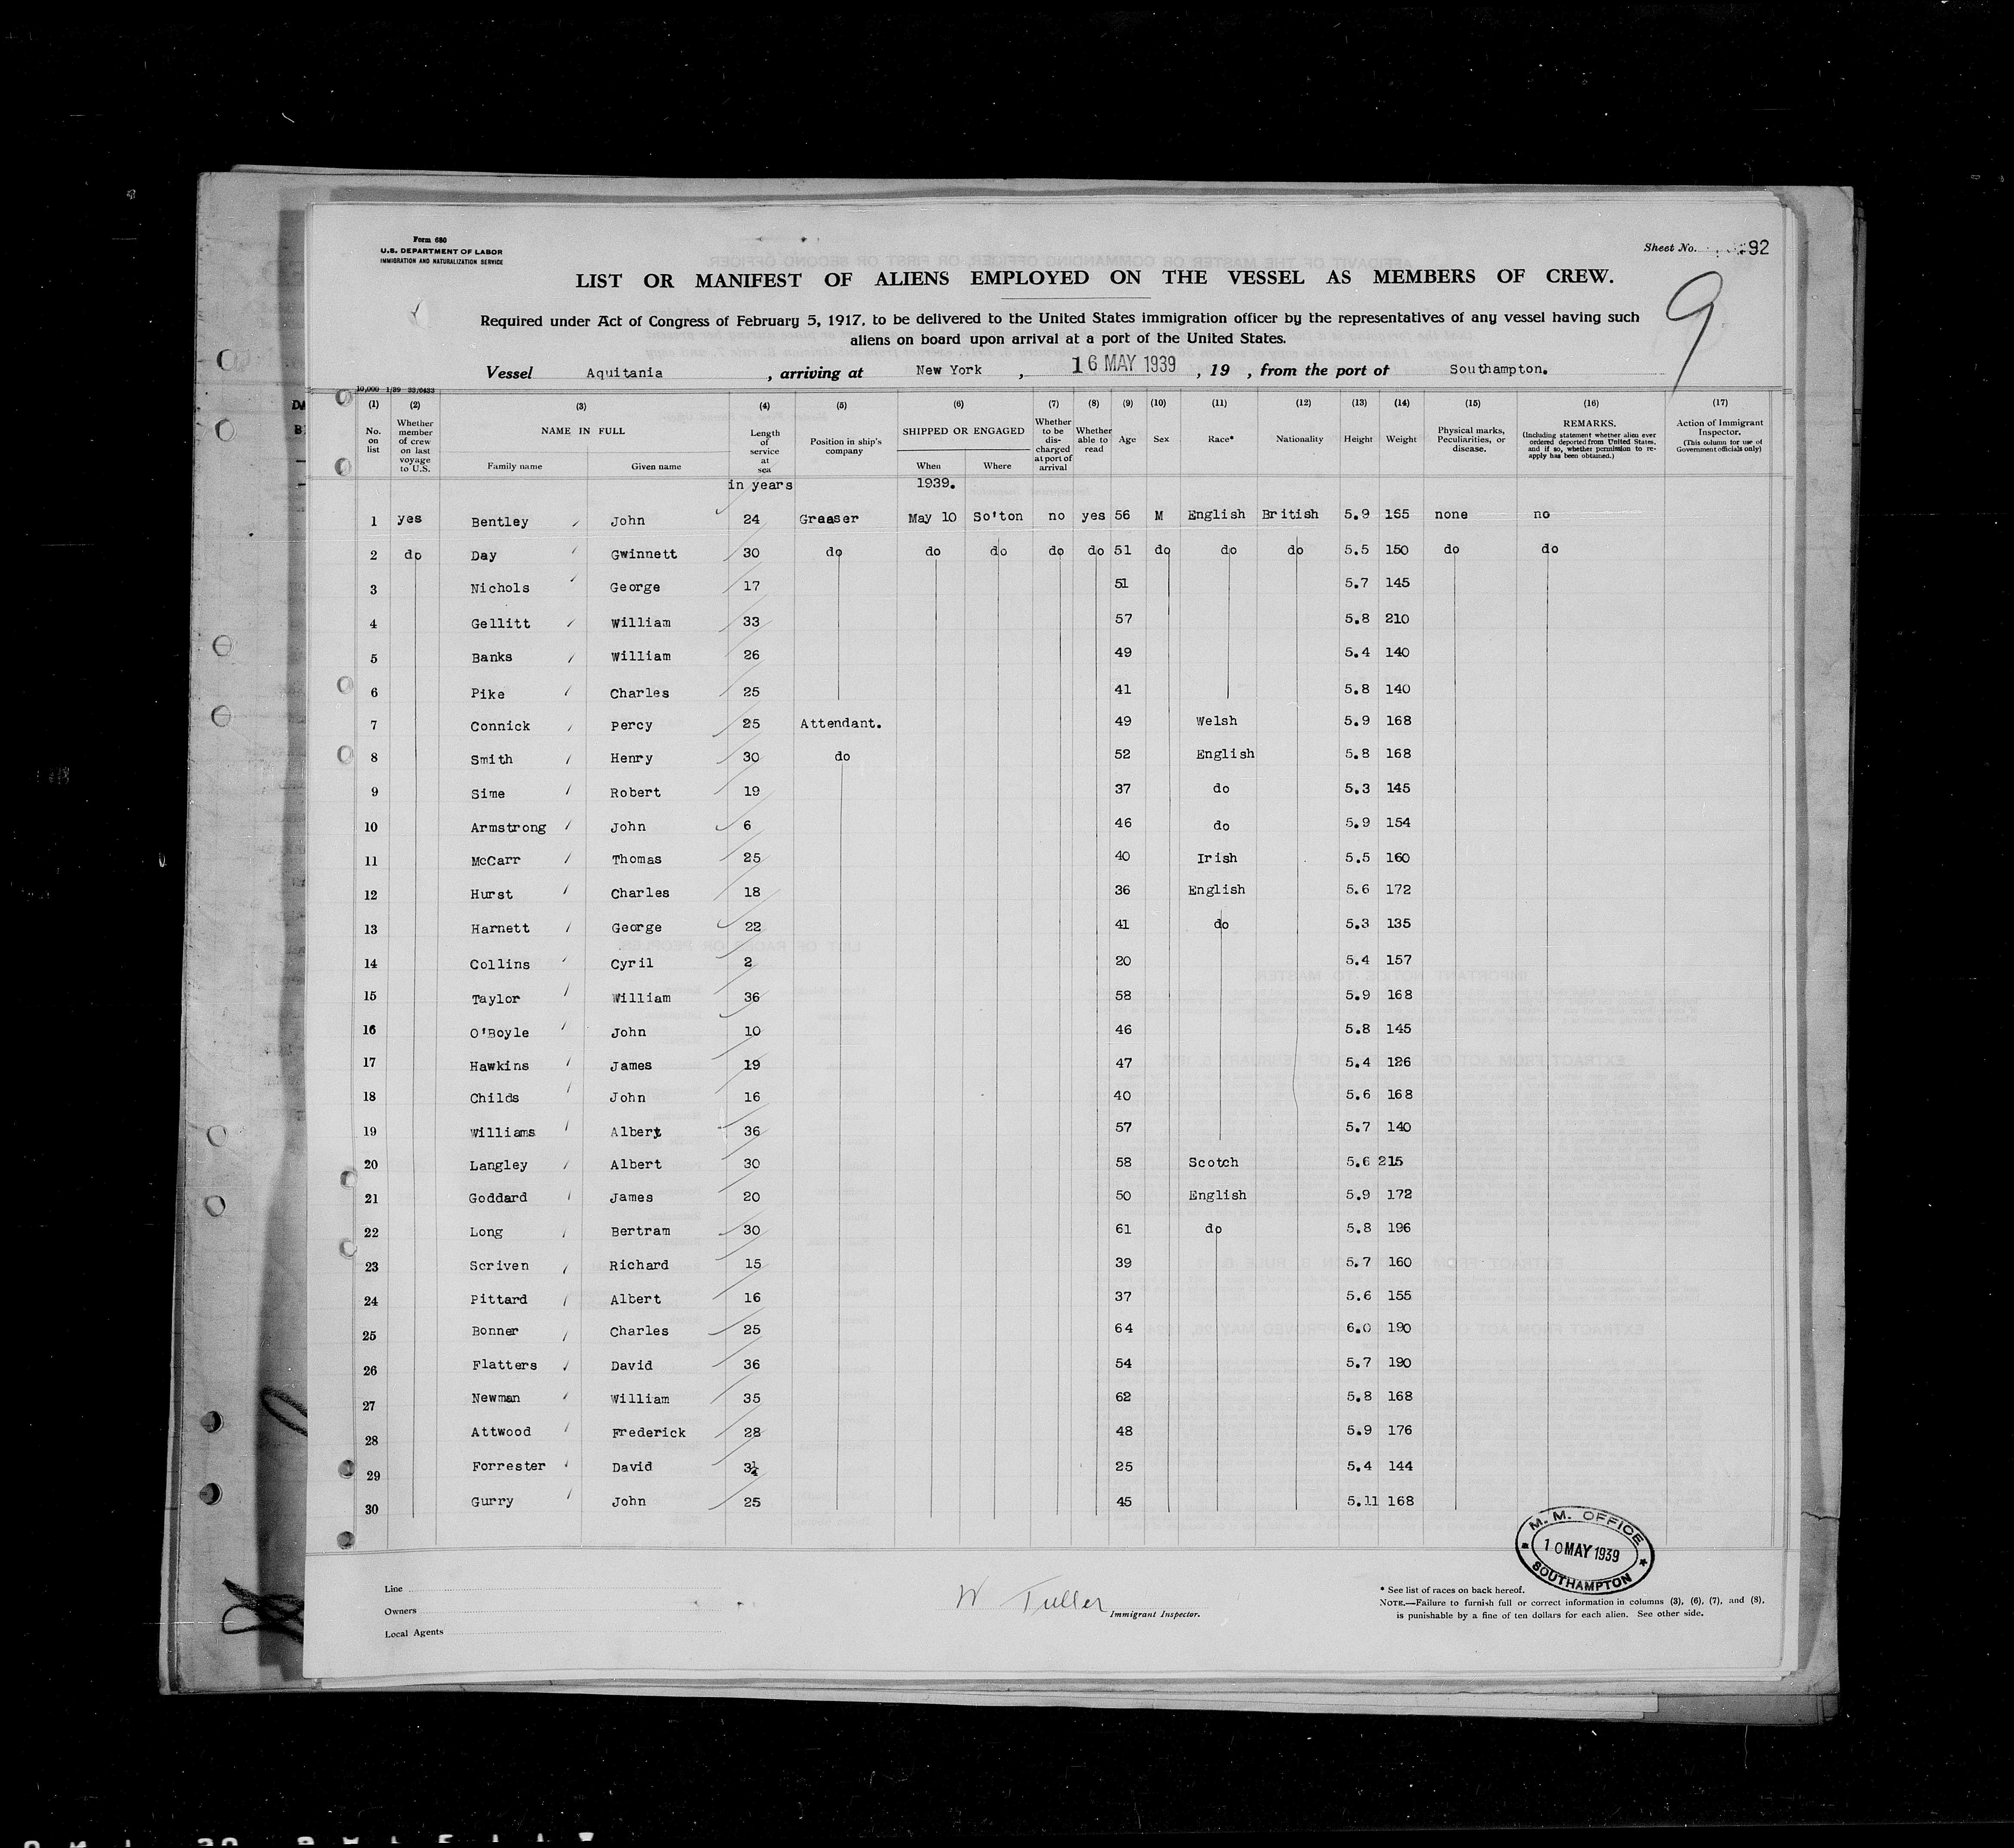 Form 680
U.S. DEPARTMENT OF LABOR
IMMIGRATION AND NATURALIZATION SERVICE
Sheet No. 92
9
LIST OR MANIFEST OF ALIENS EMPLOYED ON THE VESSEL AS MEMBERS OF CREW.
Required under Act of Congress of February 5, 1917, to be delivered to the United States immigration officer by the representatives of any vessel having such
aliens on board upon arrival at a port of the United States.
Vessel Aquitania , arriving at New York , 16 MAY 1939 , 19 , from the port of Southampton.
10,000 1/39 33/6433
(1) (2) (3) (4) (5) (6) (7) (8) (9) (10) (11) (12) (13) (14) (15) (16) (17)
No. on list Whether member of crew on last voyage to U.S. NAME IN FULL Family name Given name Length of service at sea Position in ship's company SHIPPED OR ENGAGED When Where Whether to be discharged at port of arrival Whether able to read Age Sex Race* Nationality Height Weight Physical marks, Peculiarities, or disease. REMARKS. (Including statement whether alien ever ordered deported from United States, and if so, whether permission to re-apply has been obtained.) Action of Immigrant Inspector. (This column for use of Government officials only)
in years 1939.
1 yes Bentley John 24 Greaser May 10 So'ton no yes 56 M English British 5.9 165 none no
2 do Day Gwinnett 30 do do do do do 51 do do do 5.5 150 do do
3 Nichols George 17 51 5.7 145
4 Gellitt William 33 57 5.8 210
5 Banks William 26 49 5.4 140
6 Pike Charles 25 41 5.8 140
7 Connick Percy 25 Attendant. 49 Welsh 5.9 168
8 Smith Henry 30 do 52 English 5.8 168
9 Sime Robert 19 37 do 5.3 145
10 Armstrong John 6 46 do 5.9 154
11 McCarr Thomas 25 40 Irish 5.5 160
12 Hurst Charles 18 36 English 5.6 172
13 Harnett George 22 41 do 5.3 135
14 Collins Cyril 2 20 5.4 157
15 Taylor William 36 58 5.9 168
16 O'Boyle John 10 46 5.8 145
17 Hawkins James 19 47 5.4 126
18 Childs John 16 40 5.6 168
19 Williams Albert 36 57 5.7 140
20 Langley Albert 30 58 Scotch 5.6 215
21 Goddard James 20 50 English 5.9 172
22 Long Bertram 30 61 do 5.8 196
23 Scriven Richard 15 39 5.7 160
24 Pittard Albert 16 37 5.6 155
25 Bonner Charles 25 64 6.0 190
26 Flatters David 36 54 5.7 190
27 Newman William 35 62 5.8 168
28 Attwood Frederick 28 48 5.9 176
29 Forrester David 3¼ 25 5.4 144
30 Gurry John 25 45 5.11 168
M. M. OFFICE
10 MAY 1939
SOUTHAMPTON
Line
Owners
Local Agents
W Tuller Immigrant Inspector.
* See list of races on back hereof.
NOTE.—Failure to furnish full or correct information in columns (3), (6), (7), and (8),
is punishable by a fine of ten dollars for each alien. See other side.